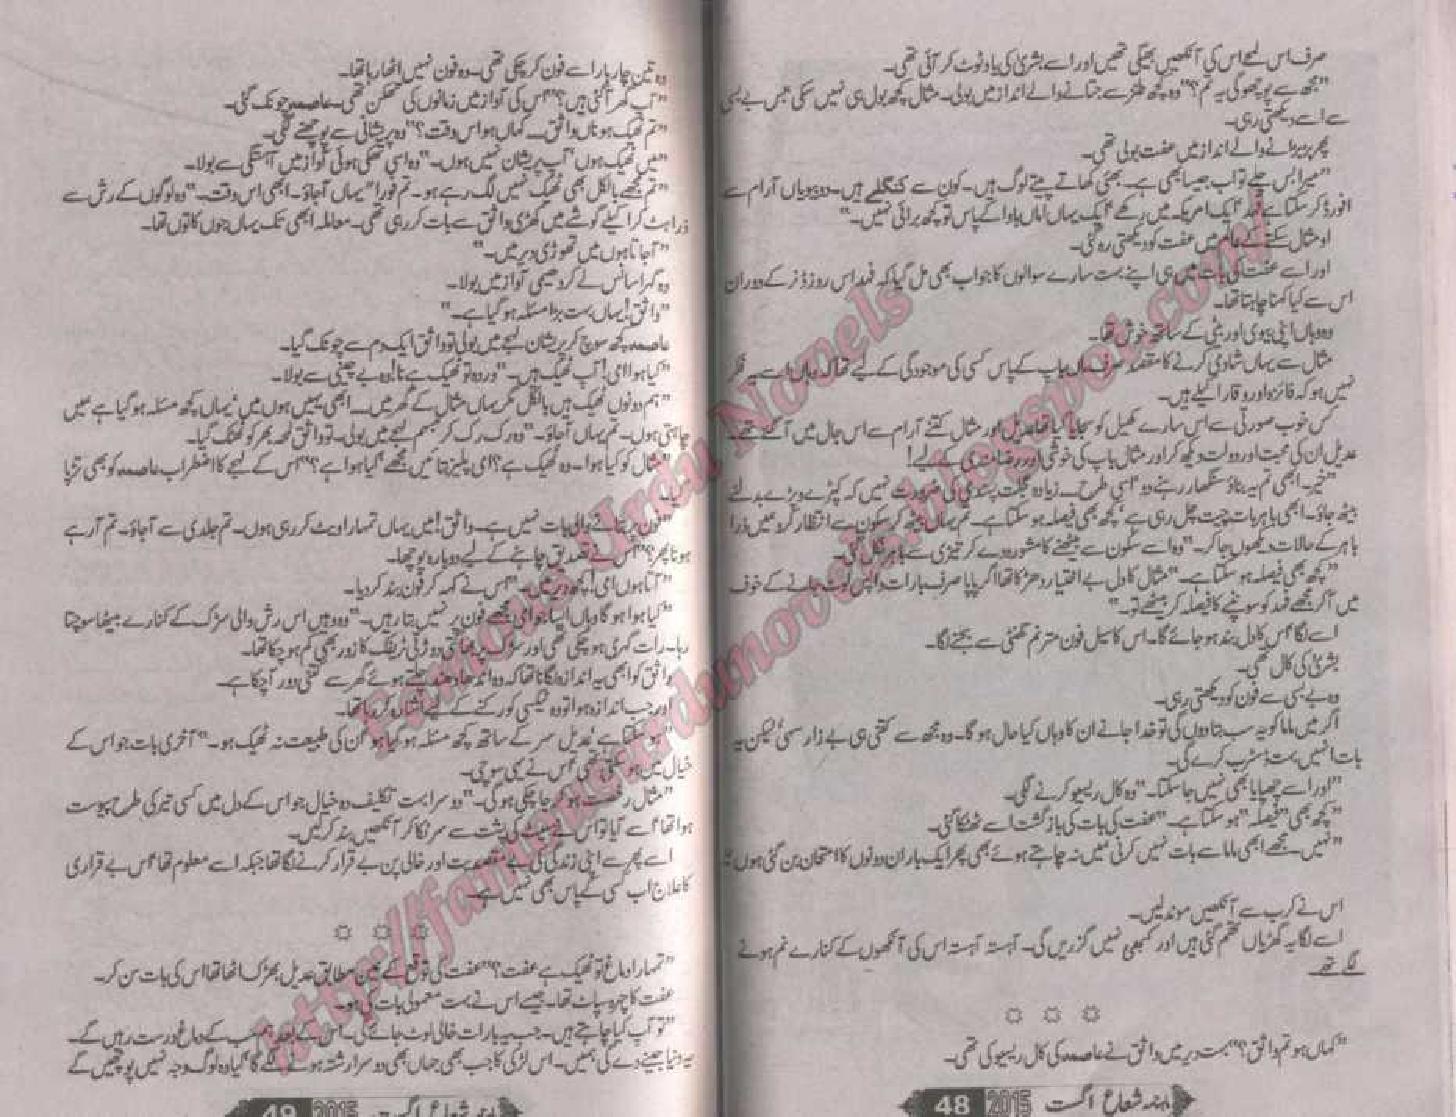 صرف اس لمحے اس کی آنکھیں بھیگی تھیں اور اسے بشریٰ کی یاد ٹوٹ کر آئی تھی۔
"مجھ سے پوچھو گی یہ تم؟" وہ کچھ طنز سے جتانے والے انداز میں بولی۔ مثال کچھ بول ہی نہیں سکی بس بے بسی
سے اسے دیکھتی رہی۔
پھر بڑبڑانے والے انداز میں عفت بولی تھی۔
"میرا بس چلے تو اب جیسا بھی ہے۔ بھئی کھاتے پیتے لوگ ہیں۔ کون سے کنگلے ہیں۔ دو بیویاں آرام سے
افورڈ کر سکتا ہے فہد ایک امریکہ میں رکھے ایک یہاں اماں باوا کے پاس تو کچھ برائی نہیں۔"
اور مثال سکتے کے عالم میں عفت کو دیکھتی رہ گئی۔
اور اسے عفت کی بات میں ہی اپنے بہت سارے سوالوں کا جواب بھی مل گیا کہ فہد اس روز ڈنر کے دوران
اس سے کیا کہنا چاہتا تھا۔
وہ وہاں اپنی بیوی اور بیٹی کے ساتھ خوش تھا۔
مثال سے یہاں شادی کرنے کا مقصد صرف ماں باپ کے پاس کسی کی موجودگی کے لیے تھا کہ وہاں اسے یہ فکر
نہیں ہو کہ فائزہ اور وقار اکیلے ہیں۔
کس خوب صورتی سے اس سارے کھیل کو سجایا گیا تھا عدیل اور مثال کتنے آرام سے اس جال میں آ گئے تھے۔
عدیل ان کی محبت اور دولت دیکھ کر اور مثال باپ کی خوشی اور رضامندی کے لیے!
"خیر ابھی تم یہ بناؤ سنگھار رہنے دو اسی طرح۔ زیادہ عجلت پسندی کی ضرورت نہیں کہ کپڑے وپڑے بدل کے
بیٹھ جاؤ۔ ابھی باہر بات چیت چل رہی ہے، کچھ بھی فیصلہ ہو سکتا ہے۔ تم یہاں بیٹھ کر سکون سے انتظار کرو میں ذرا
باہر کے حالات دیکھوں جا کر۔" وہ اسے سکون سے بیٹھنے کا مشورہ دے کر تیزی سے باہر نکل گئی۔
"کچھ بھی فیصلہ ہو سکتا ہے۔" مثال کا دل بے اختیار دھڑکا تھا اگر پاپا صرف بارات واپس لوٹ جانے کے خوف
میں آ کر مجھے فہد کو سونپنے کا فیصلہ کر بیٹھے تو۔"
اسے لگا اس کا دل بند ہو جائے گا۔ اس کا سیل فون مترنم گھنٹی سے بجنے لگا۔
بشریٰ کی کال تھی۔
وہ بے بسی سے فون کو دیکھتی رہی۔
اگر میں ماما کو یہ سب بتا دوں گی تو خدا جانے ان کا وہاں کیا حال ہو گا۔ وہ مجھ سے کتنی ہی بے زار سہی لیکن یہ
بات انہیں بہت ڈسٹرب کرے گی۔
"اور اسے چھپایا بھی نہیں جا سکتا۔" وہ کال ریسیو کرنے لگی۔
"کچھ بھی "فیصلہ" ہو سکتا ہے۔" عفت کی بات کی بازگشت اسے ٹھٹکا گئی۔
"نہیں۔ مجھے ابھی ماما سے بات نہیں کرنی میں نہ چاہتے ہوئے بھی پھر ایک بار ان دونوں کا امتحان بن گئی ہوں"
اس نے کرب سے آنکھیں موند لیں۔
اسے لگا یہ گھڑیاں تھم گئی ہیں اور کبھی نہیں گزریں گی۔ آہستہ آہستہ اس کی آنکھوں کے کنارے نم ہونے
لگے تھے۔
"کہاں ہو تم واثق؟" بہت دیر میں واثق نے عاصمہ کی کال ریسیو کی تھی۔
ماہنامہ شعاع اگست 2015 48
وہ تین چار بار اسے فون کر چکی تھی۔ وہ فون نہیں اٹھا رہا تھا۔
"آپ گھر آ گئی ہیں؟" اس کی آواز میں زمانوں کی تھکن تھی۔ عاصمہ چونک گئی۔
"تم ٹھیک ہو ناں واثق۔ کہاں ہو اس وقت؟" وہ پریشانی سے پوچھنے لگی۔
"میں ٹھیک ہوں آپ پریشان نہیں ہوں۔" وہ اسی تھکی ہوئی آواز میں آہستگی سے بولا۔
"تم مجھے بالکل بھی ٹھیک نہیں لگ رہے ہو۔ تم فورا" یہاں آ جاؤ۔ ابھی اس وقت۔" وہ لوگوں کے رش سے
ذرا ہٹ کر اکیلے گوشے میں کھڑی واثق سے بات کر رہی تھی۔ معاملہ ابھی تک یہاں جوں کا توں تھا۔
"آ جاتا ہوں میں تھوڑی دیر میں۔"
وہ گہرا سانس لے کر دھیمی آواز میں بولا۔
"واثق! یہاں بہت بڑا مسئلہ ہو گیا ہے۔"
عاصمہ کچھ سوچ کر پریشان لہجے میں بولی تو واثق ایک دم سے چونک گیا۔
"کیا ہوا امی! آپ ٹھیک ہیں۔" وردہ تو ٹھیک ہے نا! وہ بے چینی سے بولا۔
"ہم دونوں ٹھیک ہیں بالکل مگر یہاں مثال کے گھر میں۔ ابھی یہیں ہوں میں یہاں کچھ مسئلہ ہو گیا ہے میں
چاہتی ہوں۔ تم یہاں آ جاؤ۔" وہ رک رک کر مبہم لہجے میں بولی۔ تو واثق لمحہ بھر کو ٹھٹک گیا۔
"مثال کو کیا ہوا۔ وہ ٹھیک ہے؟ امی پلیز بتائیں مجھے کیا ہوا ہے؟" اس کے لہجے کا اضطراب عاصمہ کو بھی تڑپا
گیا۔
"فون پر بتانے والی بات نہیں ہے۔ واثق! میں یہاں تمہارا ویٹ کر رہی ہوں۔ تم جلدی سے آ جاؤ۔ تم آ رہے
ہو نا پھر؟" اس نے تصدیق چاہنے کے لیے دوبارہ پوچھا۔
"آتا ہوں امی! کچھ دیر میں۔" اس نے کہہ کر فون بند کر دیا۔
"کیا ہوا ہو گا وہاں ایسا جو امی مجھے فون پر نہیں بتا رہیں۔" وہ وہیں اس رش والی سڑک کے کنارے بیٹھا سوچتا
رہا۔ رات گہری ہو چکی تھی اور سڑک پر بھاگتی دوڑتی ٹریفک کا زور بھی کم ہو چکا تھا۔
واثق کو ابھی یہ اندازہ لگانا تھا کہ وہ اندھا دھند چلتے ہوئے گھر سے کتنی دور آ چکا ہے۔
اور جب اندازہ ہوا تو وہ ٹیکسی کو رکنے کے لیے اشارہ کر رہا تھا۔
"ہو سکتا ہے عدیل سر کے ساتھ کچھ مسئلہ ہو گیا ہو ان کی طبیعت نہ ٹھیک ہو۔" آخری بات جو اس کے
خیال میں ہو سکتی تھی اس نے یہی سوچی۔
"مثال رخصت ہو کر جا چکی ہو گی۔" دوسرا بہت تکلیف دہ خیال جو اس کے دل میں کسی تیر کی طرح پیوست
ہوا تھا اسے آیا تو اس نے سیٹ کی پشت سے سر ٹکا کر آنکھیں بند کر لیں۔
اسے پھر سے اپنی زندگی کی بے مقصدیت اور خالی پن بے قرار کرنے لگا تھا جبکہ اسے معلوم تھا اس بے قراری
کا علاج اب کسی کے پاس بھی نہیں ہے۔
"تمہارا دماغ تو ٹھیک ہے عفت؟" عفت کی توقع کے عین مطابق عدیل بھڑک اٹھا تھا اس کی بات سن کر۔
عفت کا چہرہ سپاٹ تھا۔ جیسے اس نے بہت معمولی بات کی ہو۔
"تو آپ کیا چاہتے ہیں۔ جب یہ بارات خالی لوٹ جائے گی۔ اس کے بعد ہم سب کے دماغ درست رہیں گے۔
یہ دنیا جینے دے گی ہمیں۔ اس لڑکی کا جب بھی جہاں بھی دوسرا رشتہ ہونے لگے گا کیا وہ لوگ وجہ نہیں پوچھیں گے
ماہنامہ شعاع اگست 2015 49
Famous Urdu Novels
http://famousurdunovels.blogspot.com/